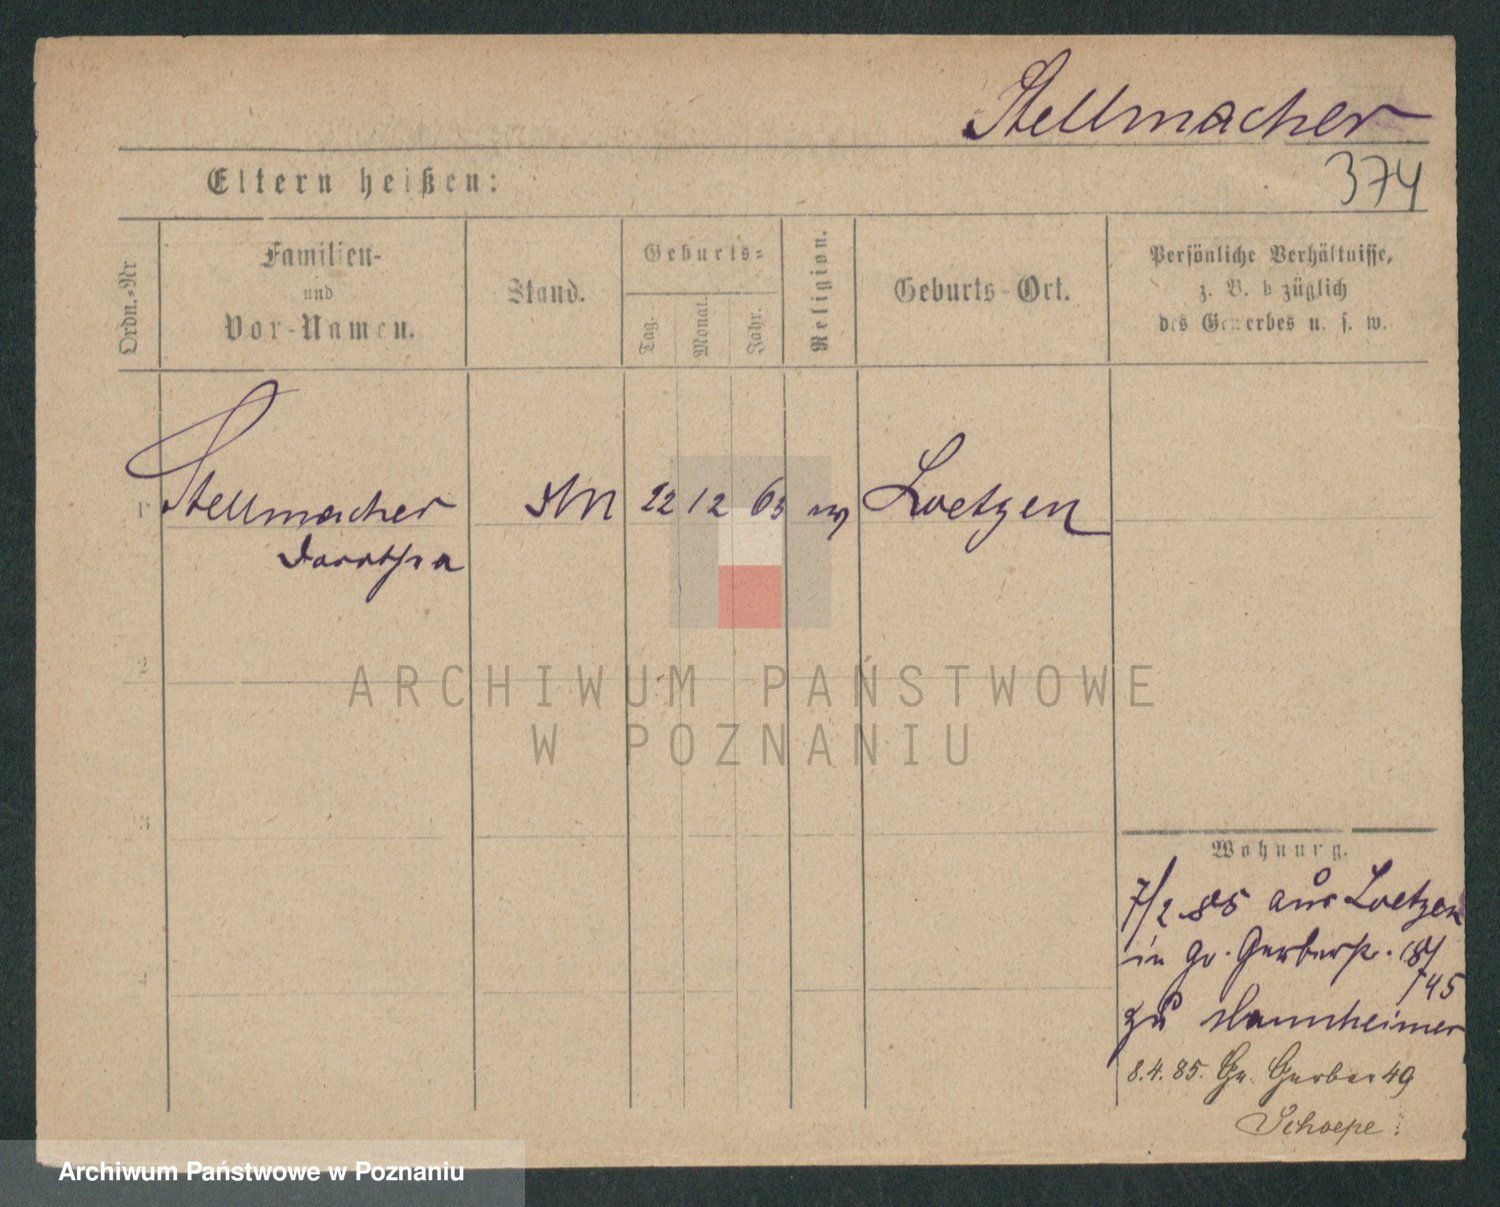 Stellmacher
374
Eltern heißen:
Ordn.-Nr
Familien-
und
Vor-Namen.
Stand.
Geburts-
Tag.
Monat.
Jahr.
Religion.
Geburts-Ort.
Persönliche Verhältnisse,
z. B. bezüglich
des Gewerbes u. s. w.
1 Stellmacher 22 12 63 Loetzen
Dorothea
2
3
4
Wohnung.
7/2 85 aus Loetzen
in Gr. Gerberstr.
45
zu Mannheimer
8.4.85. Gr. Gerber 49
Schoepe
ARCHIWUM PAŃSTWOWE
W POZNANIU
Archiwum Państwowe w Poznaniu